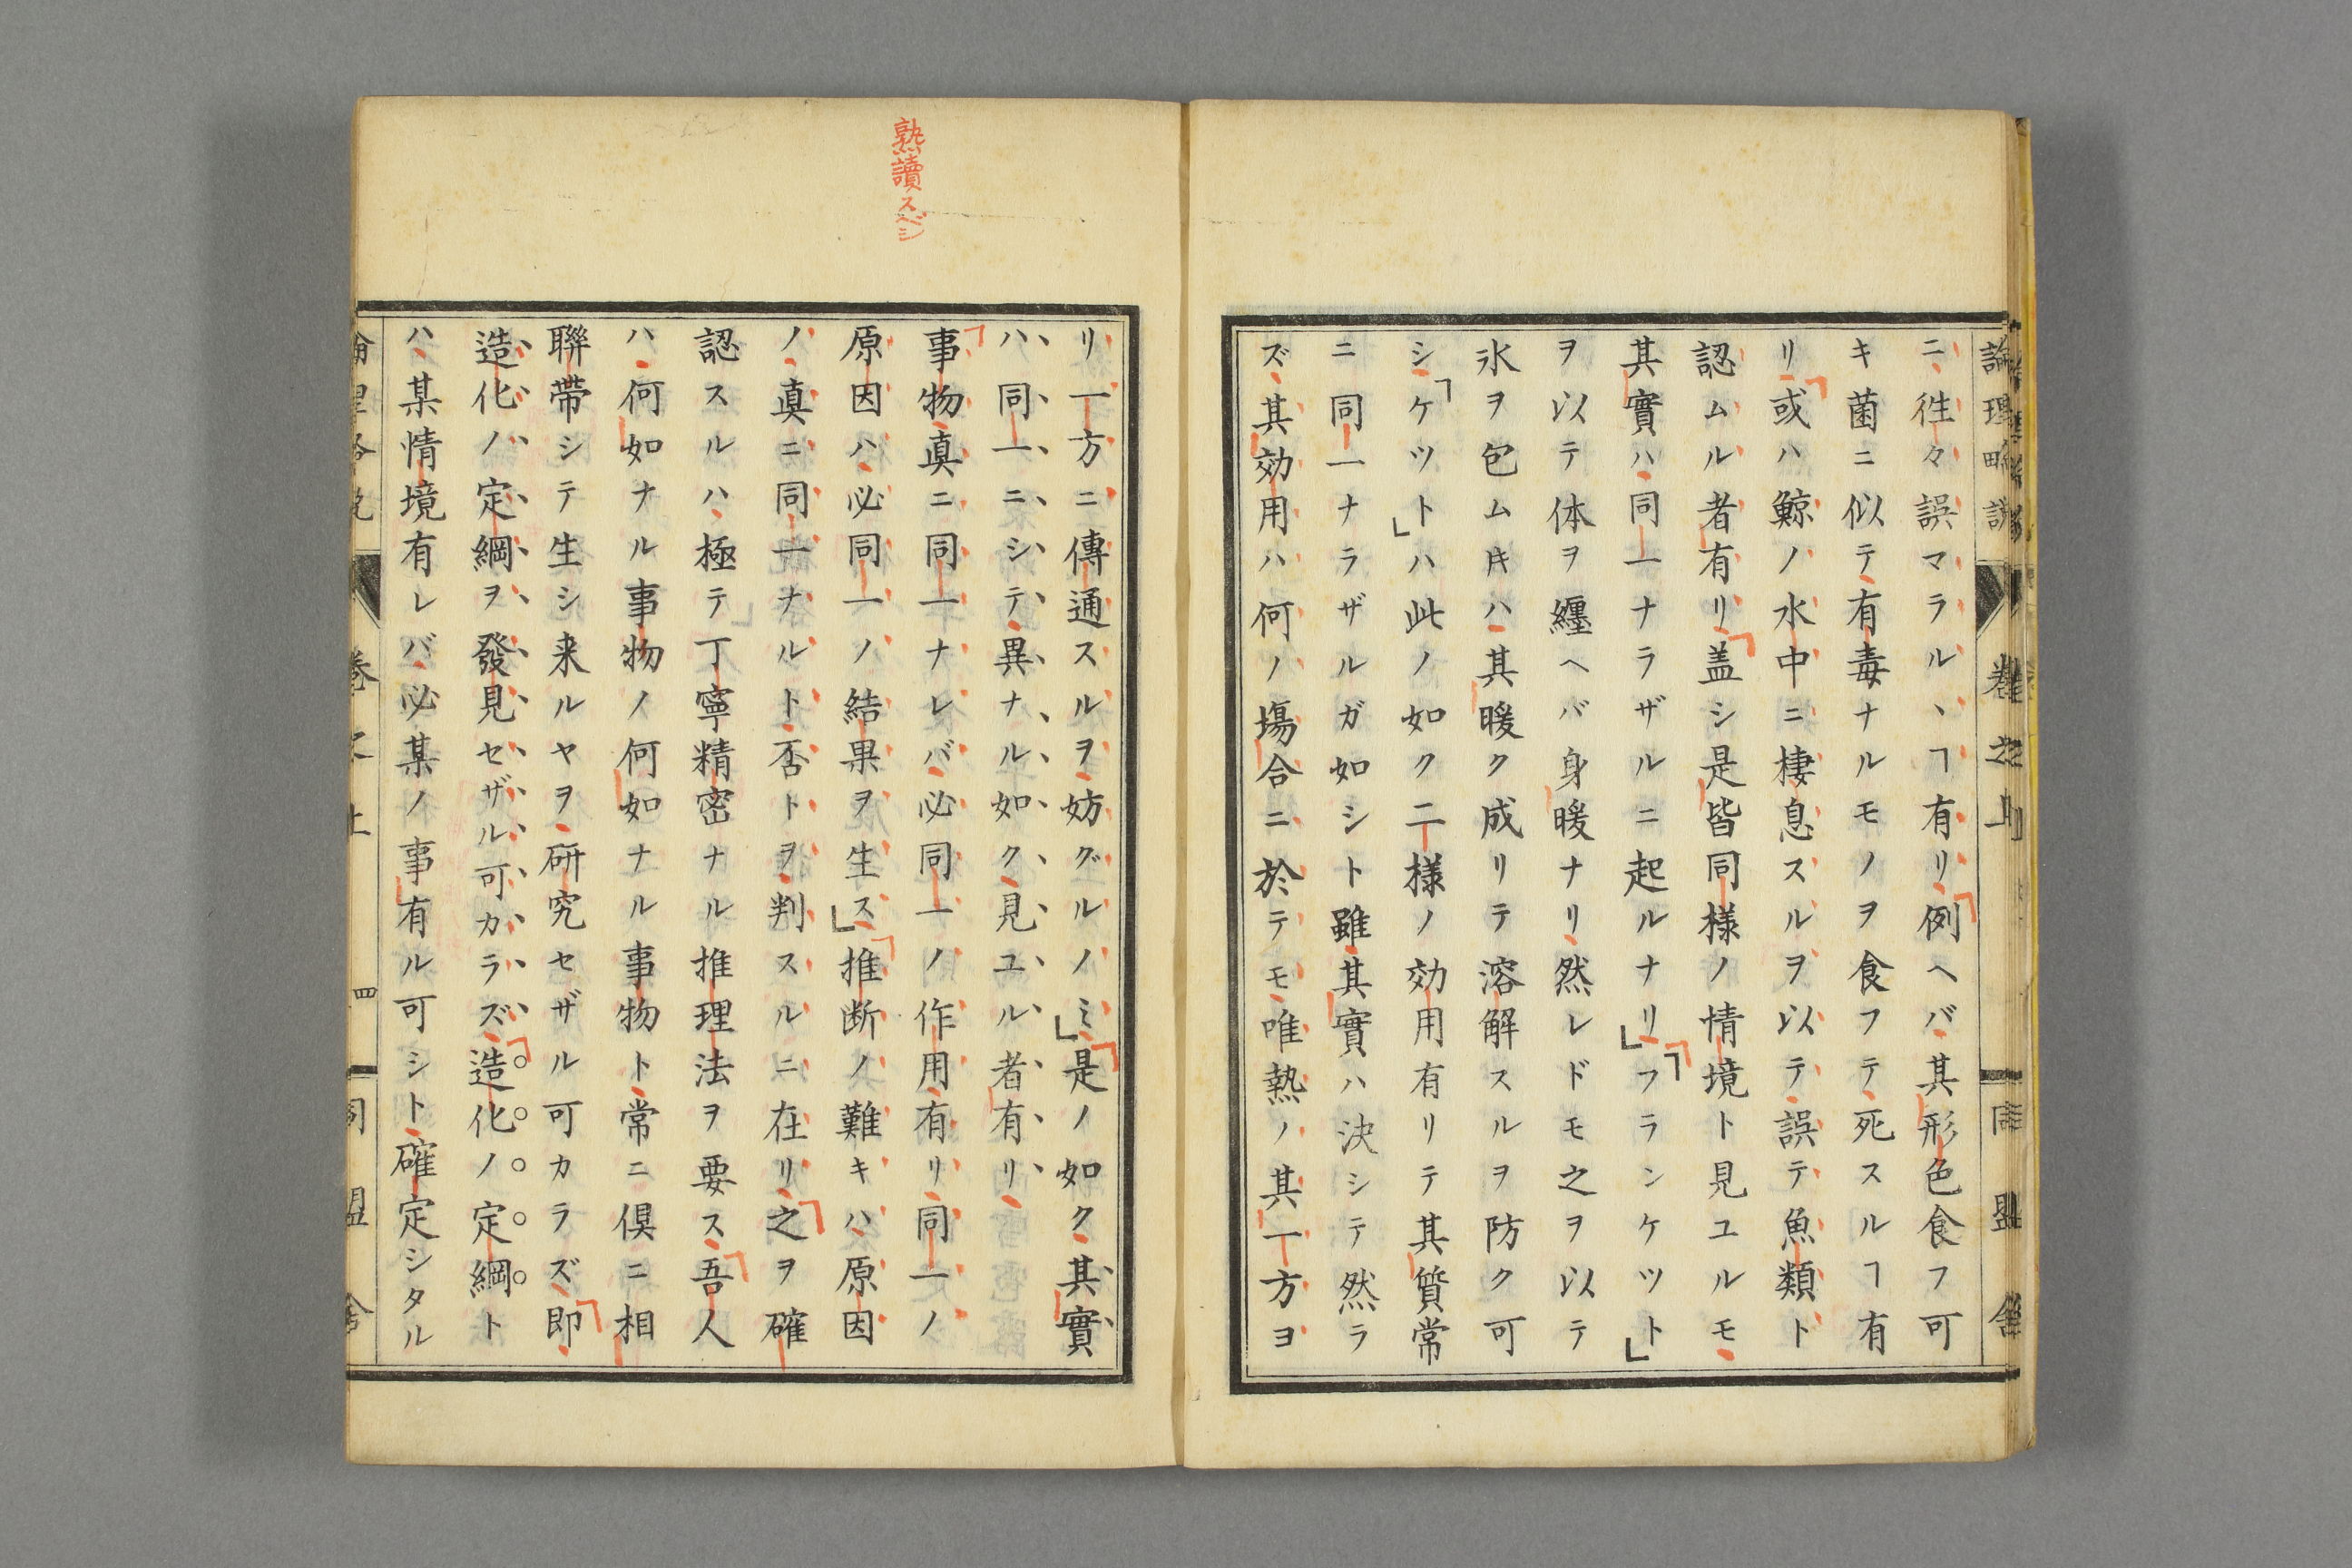 ニ徃々誤マラルヽヿ有リ例ヘバ其形色食フ可
キ菌ニ似テ有毒ナルモノヲ食フテ死スルヿ有
リ或ハ鯨ノ水中ニ棲息スルヲ以テ誤テ魚類ト
認ムル者有リ盖シ是皆同様ノ情境ト見ユルモ
其實ハ同一ナラザルニ起ルナリ「フランケツト」
ヲ以テ体ヲ纒ヘバ身暖ナリ然レドモ之ヲ以テ
氷ヲ包ムキハ其暖ク成リテ溶解スルヲ防ク可
シ「ケツト」ハ此ノ如ク二様ノ効用有リテ其質常
ニ同一ナラザルガ如シト雖其實ハ決シテ然ラ
ズ其効用ハ何ノ塲合ニ於テモ唯熱ノ其一方ヨ
熟讀スベシ
リ一方ニ傳通スルヲ妨グルノミ是ノ如ク其實
ハ同一ニシテ異ナル如ク見ユル者有リ
事物真ニ同一ナレバ必同一ノ作用有リ同一ノ
原因ハ必同一ノ結果ヲ生ス推断ノ難キハ原因
ノ真ニ同一ナルト否トヲ判スルニ在リ之ヲ確
認スルハ極テ丁寧精密ナル推理法ヲ要ス吾人
ハ何如ナル事物ノ何如ナル事物ト常ニ倶ニ相
聯帶シテ生シ来ルヤヲ研究セザル可カラズ即
造化ノ定綱ヲ發見セザル可カラズ造化ノ定綱ト
ハ某情境有レバ必某ノ事有ル可シト確定シタル